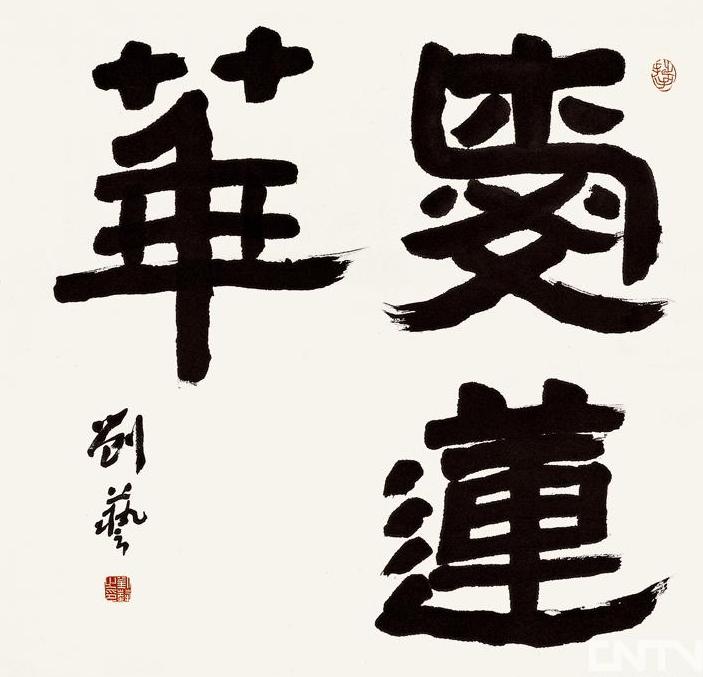 愛蓮
華
劉藝
CNTV